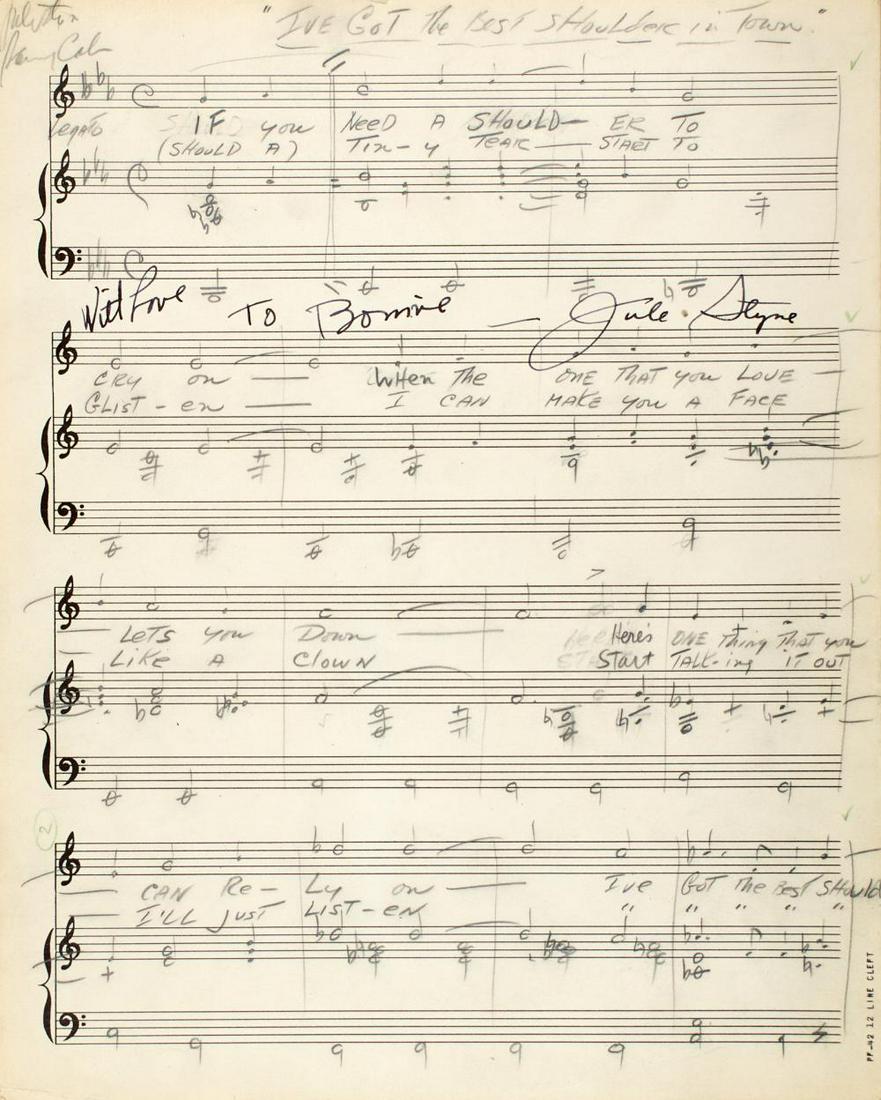 "I've Got the Best Shoulder in Town."
Legato IF you NeeD A SHOULD— ER To
(SHOULD A) Tin-y TEAR — START To
With Love To Bonnie — Jule Styne
CRY on — When The ONE THAT you LOVE —
GLIST-en — I CAN MAKE you A FACE
— LeTs you Down — Here's ONE Thing That you
LIKE A CLOWN Start TALK-ing IT OUT
2
— CAN Re— Ly on — I've GoT The BesT SHould
I'LL JusT LIST-eN " " " " "
PF-N2 12 LINE CLEFT